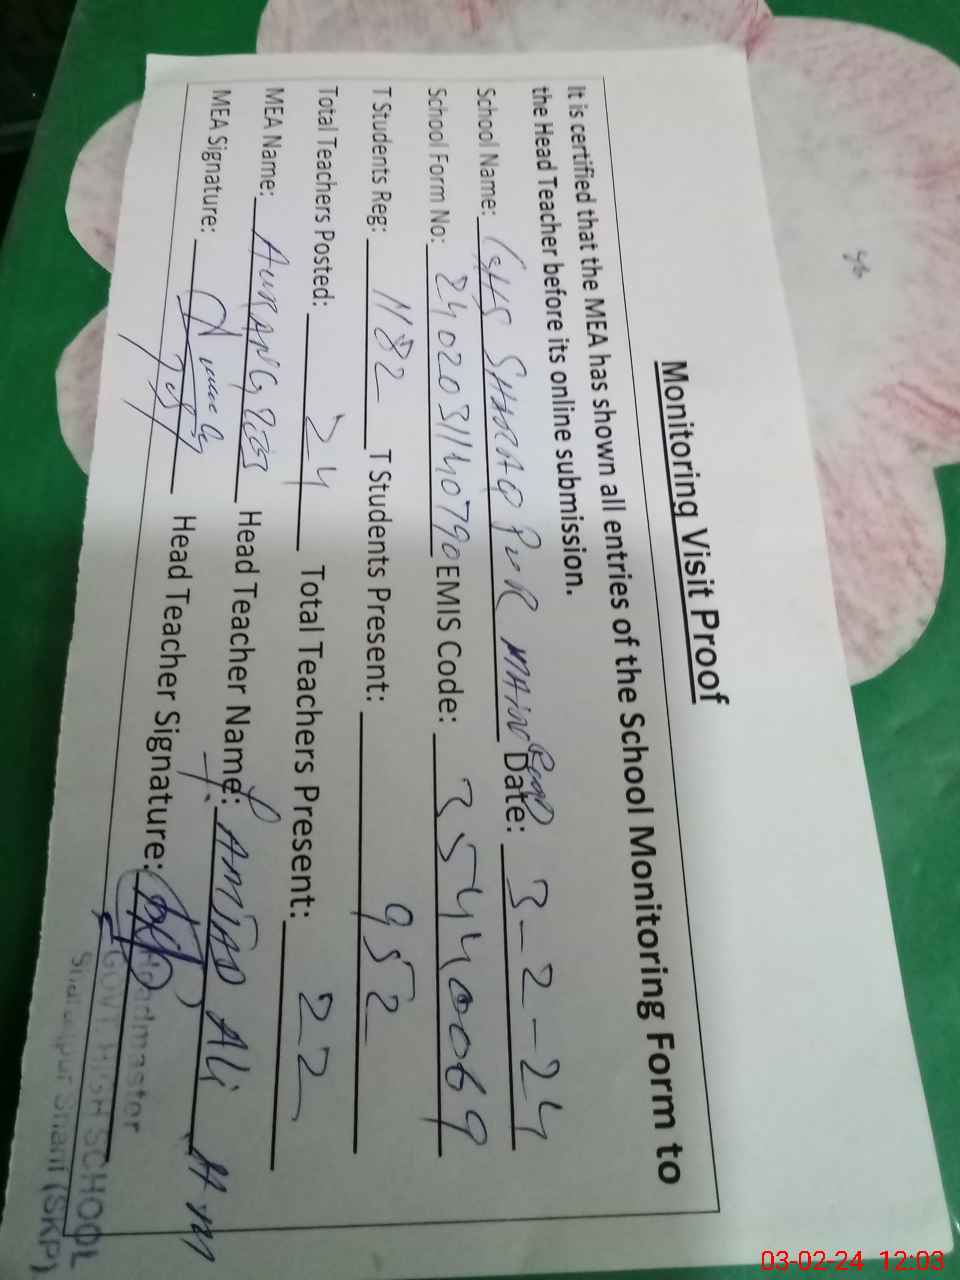 Monitoring Visit Proof
It is certified that the MEA has shown all entries of the School Monitoring Form to
the Head Teacher before its online submission.
School Name: GHS SHARAQPUR MAIN Road Date: 3-2-24
School Form No: 2402031140790 EMIS Code: 35440069
T Students Reg: 1182 T Students Present: 952
Total Teachers Posted: 24 Total Teachers Present: 22
MEA Name: AURANGZEB Head Teacher Name: AMJAD Ali H M
MEA Signature: Head Teacher Signature:
Headmaster
GOVT. HIGH SCHOOL
(SKP)
03-02-24 12:03